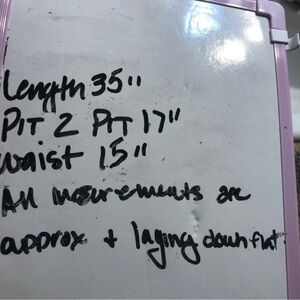 Length 35"
PIT 2 PIT 17"
waist 15"
All measurements are
approx + laying down flat